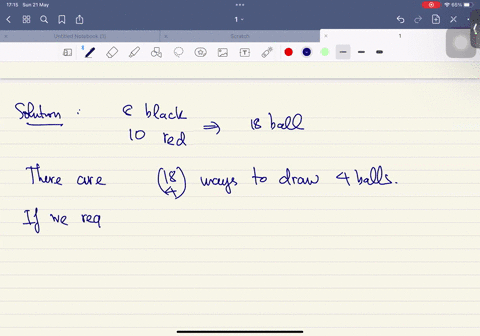 17:15 Sun 21 May
55%
1
Untitled Notebook (3)
Scratch
1
Solution :
8 black
10 red
⇒ 18 ball
There are (18 4) ways to draw 4 balls.
If we req